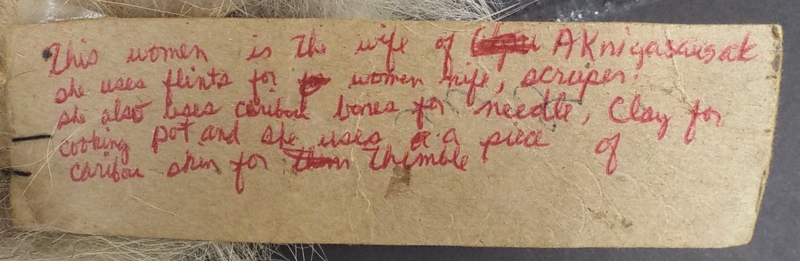 This women is the wife of Aknigasausak
she uses flints for women knife, scraper.
she also uses caribou bones for needle, Clay for
cooking pot and she uses a piece of
caribou skin for thimble